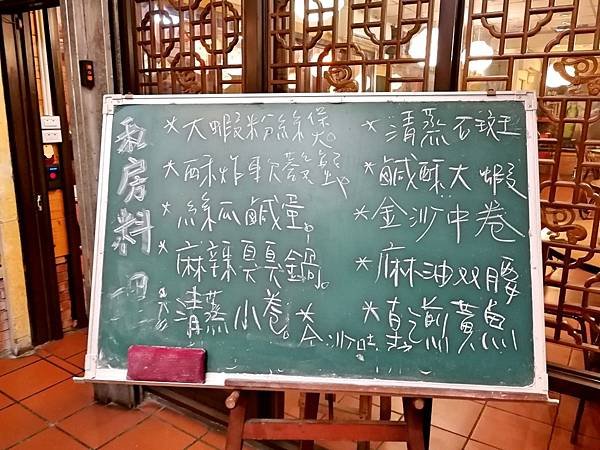 私房料理
*大蝦粉絲煲。
*酥炸軟殼蟹
*絲瓜鹹蛋。
*麻辣臭臭鍋。
*清蒸小卷。
*金沙
*清蒸石斑
*鹹酥大蝦
*金沙中卷
*麻油双腰
*乾煎黃魚